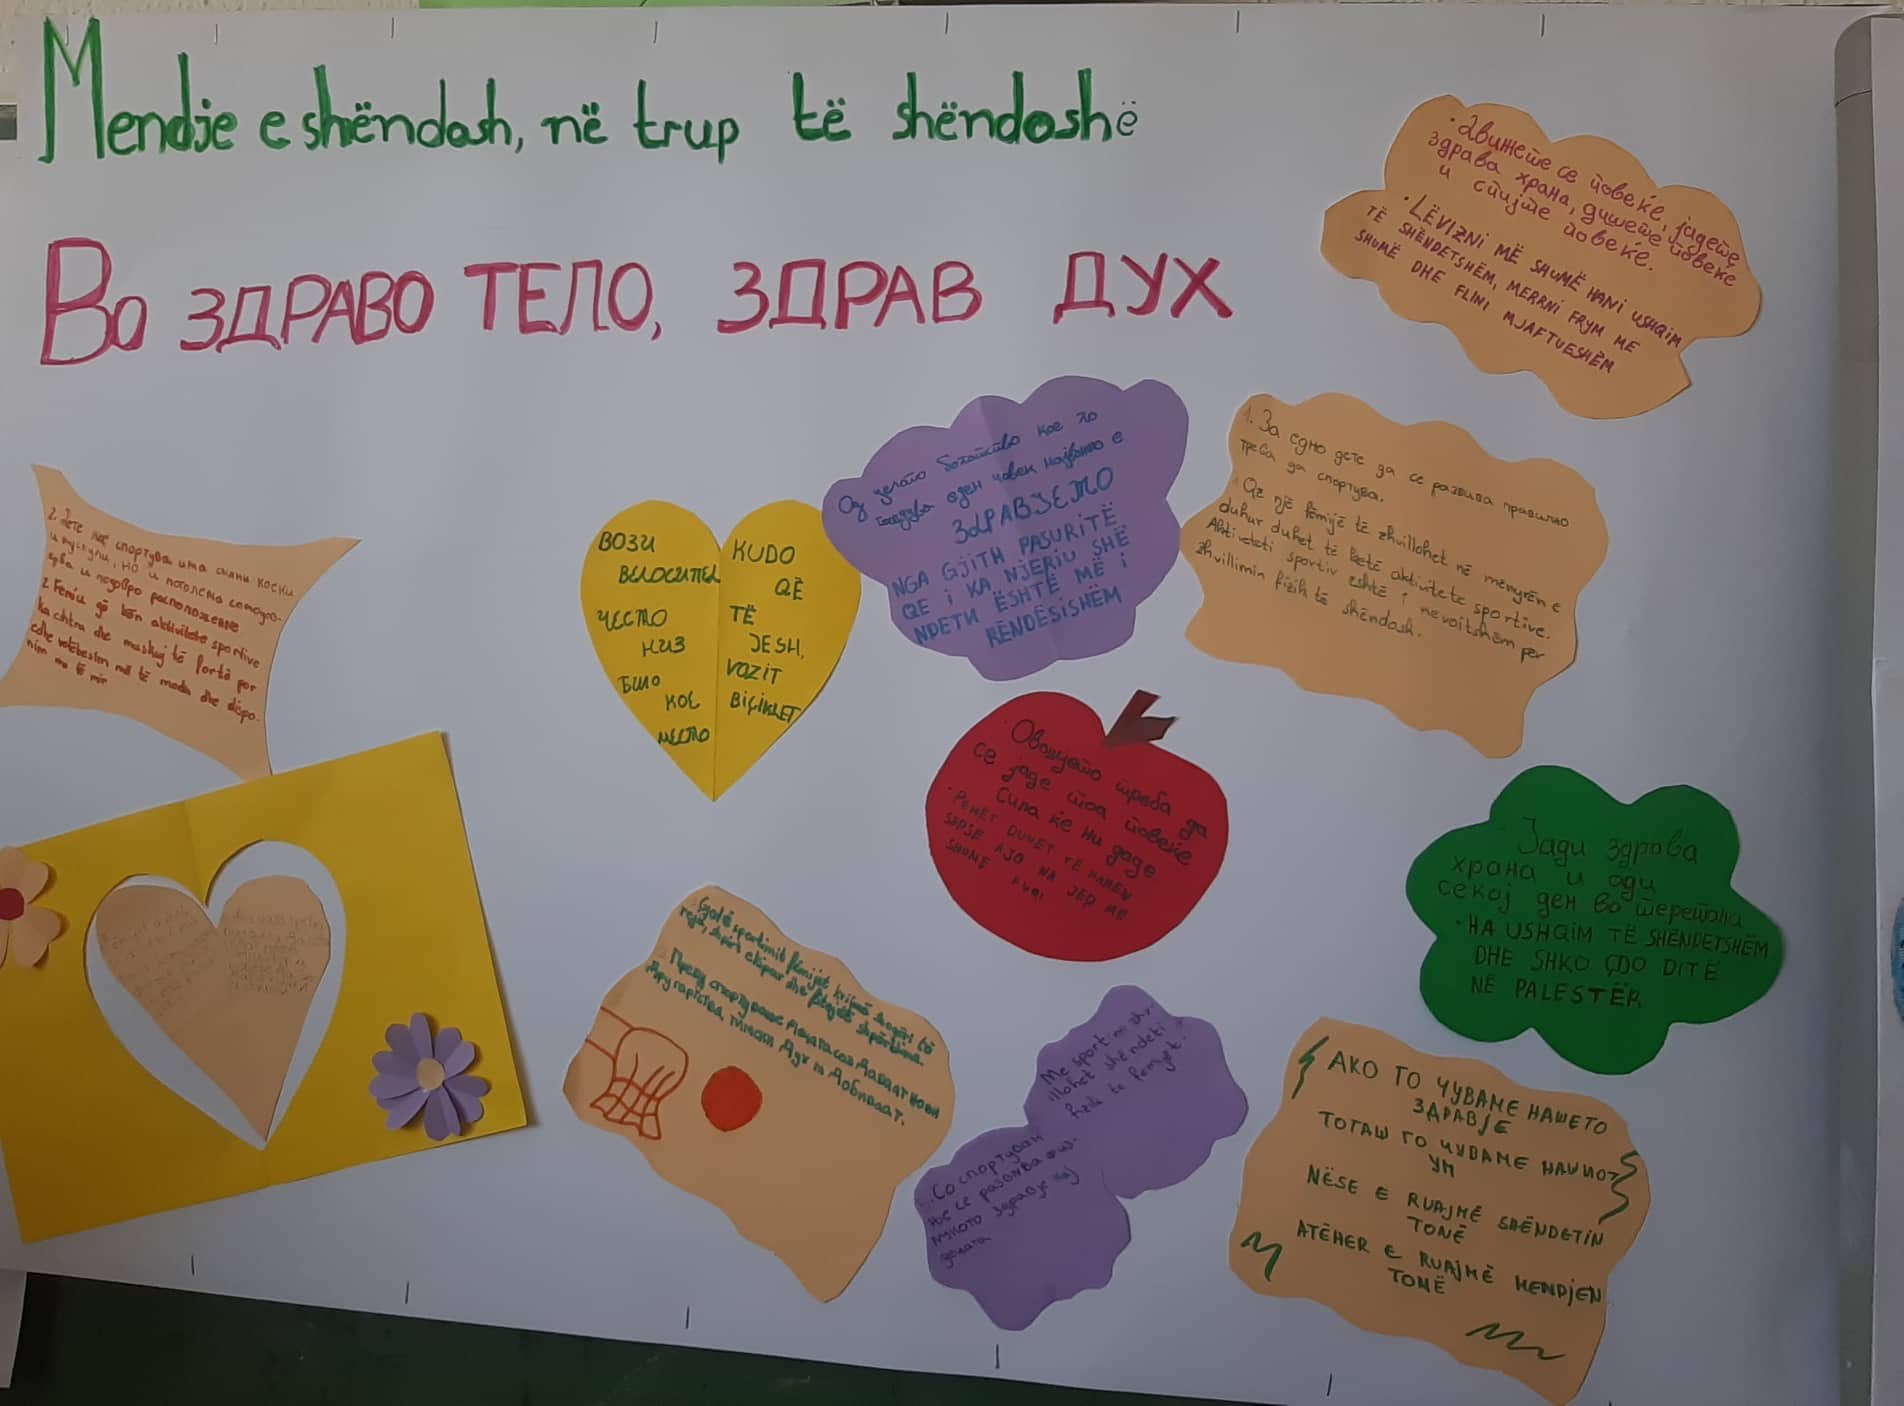 Mendje e shëndosh, në trup të shëndoshë
Во ЗДРАВО ТЕЛО, ЗДРАВ ДУХ
· Движете се повеќе, јадете
здрава храна, дишете повеќе
и спијте повеќе.
· LËVIZNI MË SHUMË HANI USHQIM
TË SHËNDETSHËM, MERRNI FRYM ME
SHUMË DHE FLINI MJAFTUESHËM
Од целото богатство кое го
поседува еден човек најважно е
ЗДРАВЈЕТО
NGA GJITH PASURITË
QË I KA NJERIU SHË
NDETI ËSHTË MË I
RËNDËSISHËM
1. За едно дете да се развива правилно
треба да спортува.
1 Që një fëmijë të zhvillohet në menyrën e
duhur duhet të ketë aktivitete sportive.
Aktiviteti sportiv është i nevoitshëm per
zhvillimin fizik të shëndosh.
2. Дете кое спортува има силни коски
и мускули, но и поголема самодо-
ерба и подобро расположение
2. Femiu që bën aktivitete sportive
ka eshtra dhe muskuj të fortë por
edhe vetëbesim më të madh dhe dispo-
nim me të mir
ВОЗИ
ВЕЛОСИПЕД
ЧЕСТО
НИЗ
БИЛО
КОЕ
МЕСТО
KUDO
QË
TË
JESH,
VOZIT
BIÇIKLET
Овошјето треба да
се јаде тоа повеќе
Сила ќе ни даде
· PEMËT DUHET TË HAHEN
SEPSE AJO NA JEP MË
SHUMË
Јади здрава
храна и оди
секој ден во теретана
· HA USHQIM TË SHËNDETSHËM
DHE SHKO ÇDO DITË
NË PALESTËR
Gjatë sportimit fëmijët krijojnë shoqëri të
rejë, shpirt ekipor dhe
Преку спортување децата создаваат нови
другарства, тимски дух и добиваат.
Me sport mi zhv
illohet shëndeti
fizik te femijet.
Со спортува
ње се развива физ-
ичкото здравје кај
децата
АКО ГО ЧУВАМЕ НАШЕТО
ЗДРАВЈЕ
ТОГАШ ГО ЧУВАМЕ НАШИОТ
УМ
NËSE E RUAJMË SHËNDETIN
TONË
ATËHER E RUAJMË MENDJEN
TONË